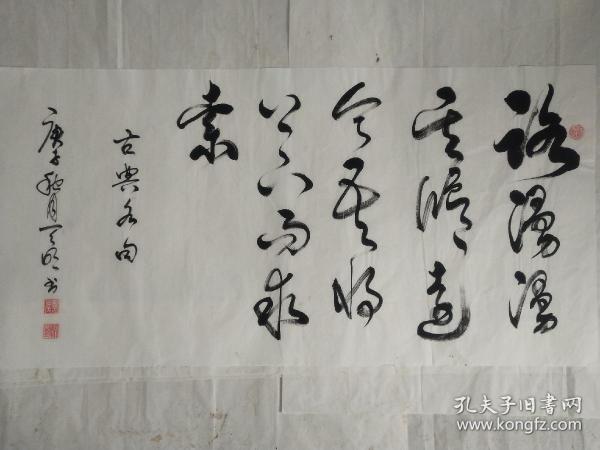 路漫漫
其修遠
兮吾将
上下而求
索
古典名句
庚子秋月 书
孔夫子旧書网
www.kongfz.com